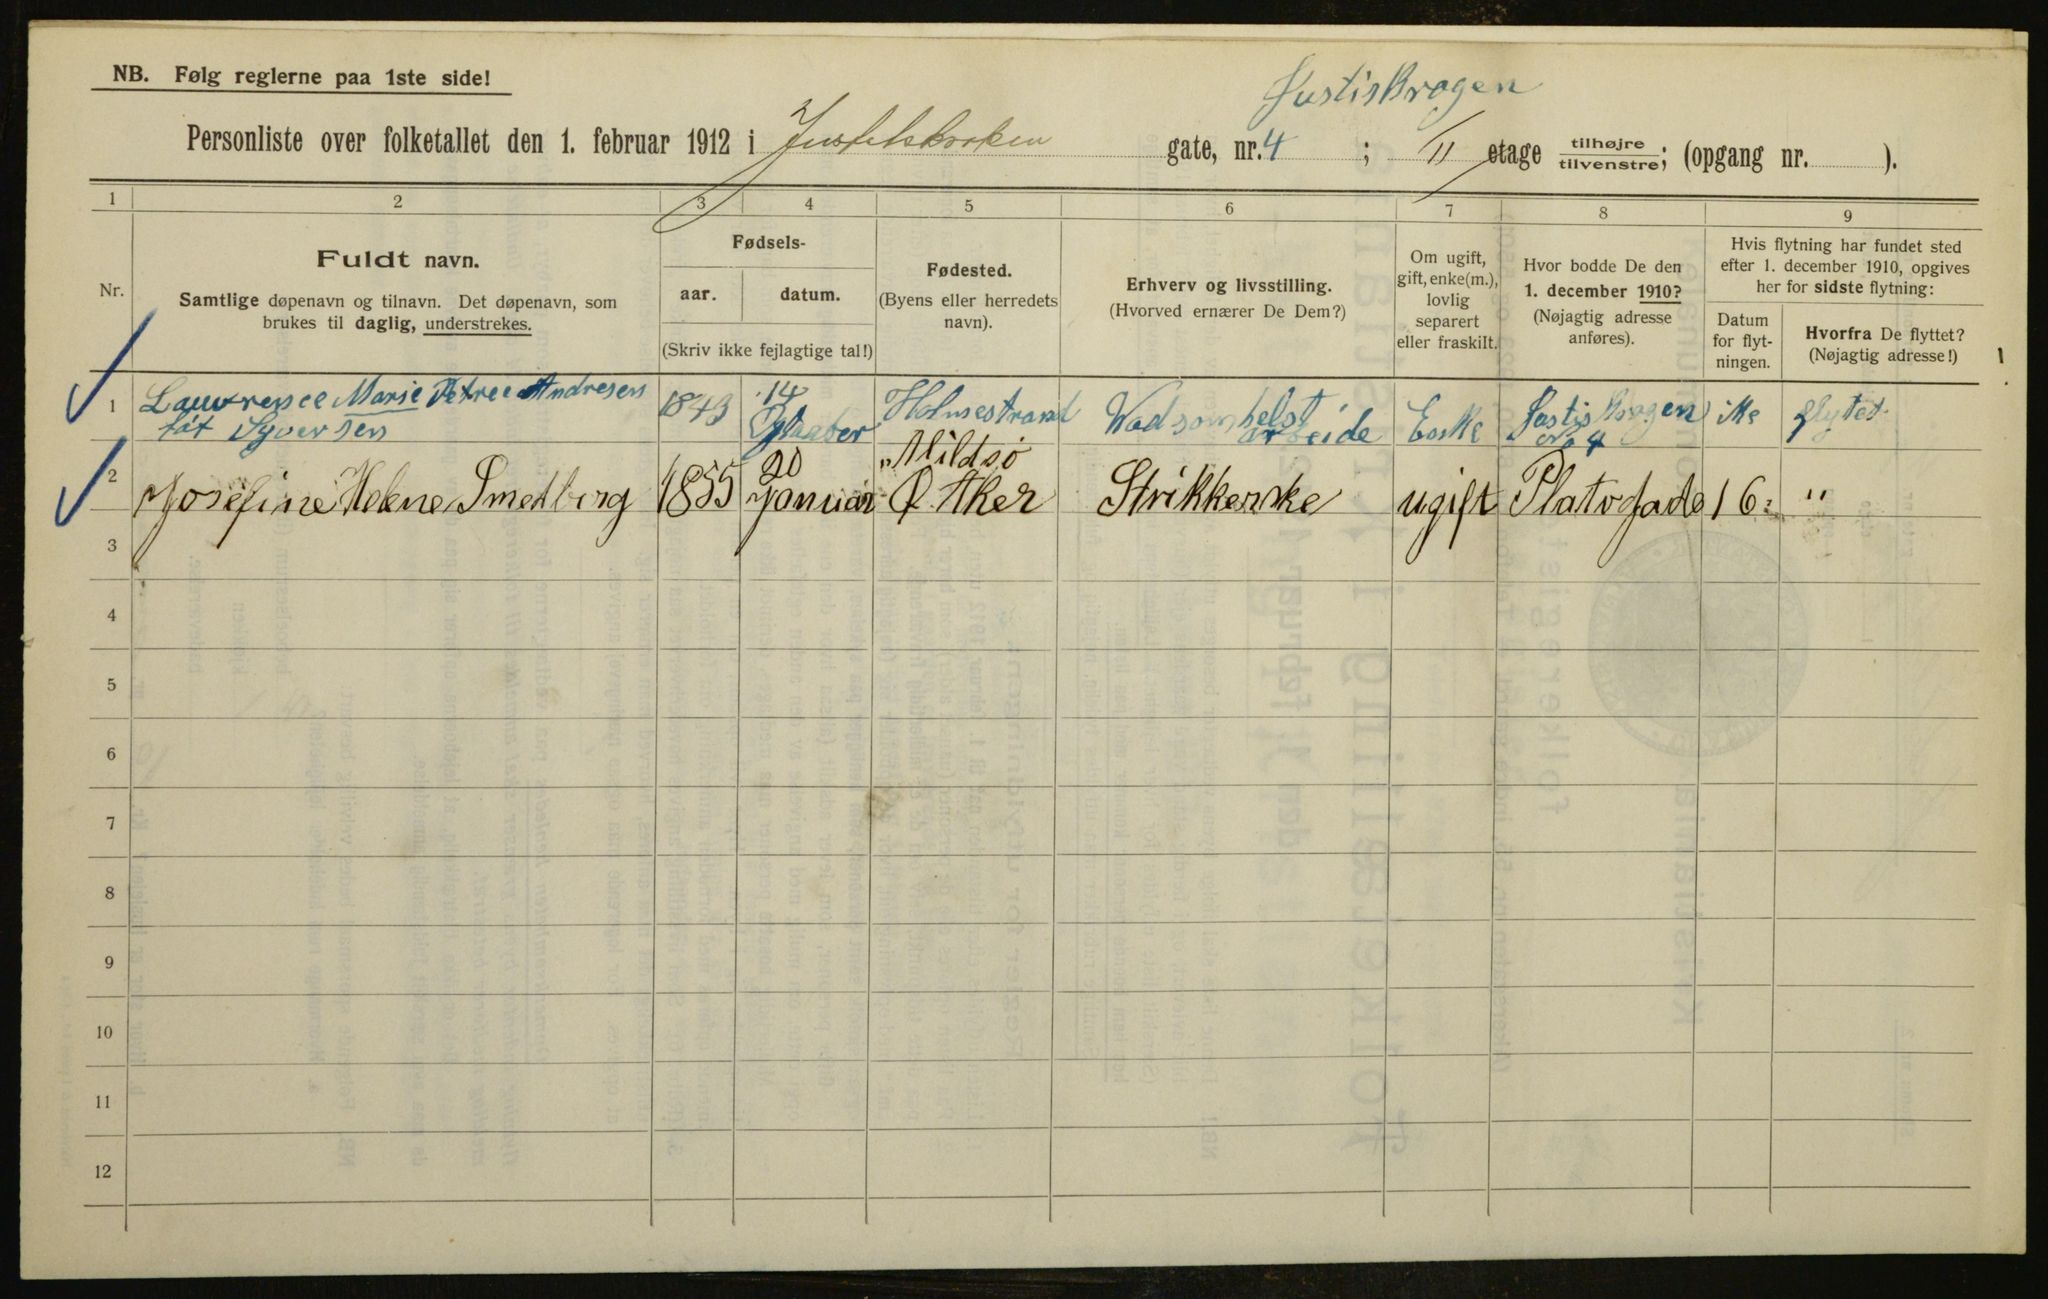 NB. Følg reglerne paa 1ste side!
JustisKrogen
Personliste over folketallet den 1. februar 1912 i Justitskroken gate, nr. 4 ; II etage tilhøjre/tilvenstre; (opgang nr. ).
1 2 3 4 5 6 7 8 9
Nr.
Fuldt navn.
Samtlige døpenavn og tilnavn. Det døpenavn, som
brukes til daglig, understrekes.
Fødsels-
aar. datum.
(Skriv ikke fejlagtige tal!)
Fødested.
(Byens eller herredets
navn).
Erhverv og livsstilling.
(Hvorved ernærer De Dem?)
Om ugift,
gift, enke(m.),
lovlig
separert
eller fraskilt.
Hvor bodde De den
1. december 1910?
(Nøjagtig adresse
anføres).
Hvis flytning har fundet sted
efter 1. december 1910, opgives
her for sidste flytning:
Datum
for flyt-
ningen.
Hvorfra De flyttet?
(Nøjagtig adresse!)
1 Lauvrensee Marie Petree Andresen 1843 14 Holmestrand Vadsomhelst arbeide Enke Justis Krogen No 4 ike flytet
føt Syversen
2 Josefine Helene Smedberg 1855 20 januar Ø. Aker Strikkerske ugift Platogade 16 "
3
4
5
6
7
8
9
10
11
12